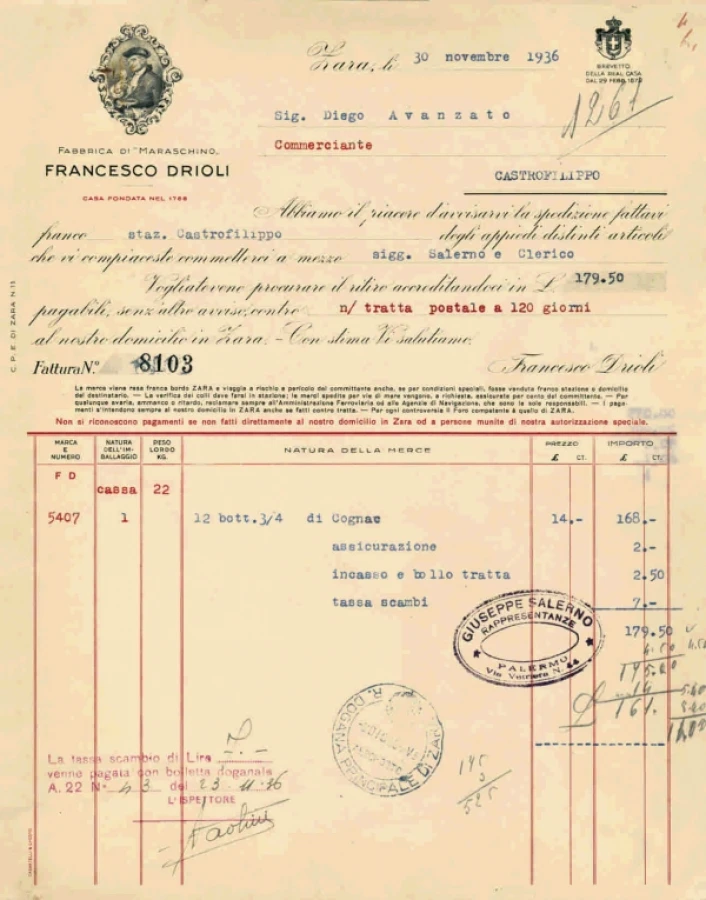 Zara, li 30 novembre 1936
BREVETTO
DELLA REAL CASA
1267
Sig. Diego Avanzato
Commerciante
CASTROFILIPPO
FABBRICA DI MARASCHINO
FRANCESCO DRIOLI
CASA FONDATA NEL 1768
Abbiamo il piacere d'avvisarvi la spedizione fattavi
franco staz. Castrofilippo degli appiedi distinti articoli
che vi compiaceste commetterci a mezzo sigg. Salerno e Clerico
Vogliatevene procurare il ritiro accreditandoci in £ 179.50
pagabili, senz'altro avviso, contro n/ tratta postale a 120 giorni
al nostro domicilio in Zara. - Con stima Vi salutiamo.
Fattura N.° 8103
Francesco Drioli
C. P. E. DI ZARA N. 13
La merce viene resa franco bordo ZARA e viaggia a rischio e pericolo del committente anche, se per condizioni speciali, fosse venduta franco stazione e domicilio
del destinatario. — La verifica dei colli deve farsi in stazione; le merci spedite per via di mare vengono, a richiesta, assicurate per conto del committente. — Per
qualunque avaria, ammanco o ritardo, reclamare sempre all'Amministrazione Ferroviaria od alle Agenzie di Navigazione, che sono le sole responsabili. — I paga-
menti s'intendono sempre al nostro domicilio in ZARA anche se fatti contro tratta. — Per ogni controversia il Foro competente è quello di ZARA.
Non si riconoscono pagamenti se non fatti direttamente al nostro domicilio in Zara od a persone munite di nostra autorizzazione speciale.
MARCA E NUMERO NATURA DELL'IM- BALLAGGIO PESO LORDO KG. NATURA DELLA MERCE PREZZO £ CT. IMPORTO £ CT.
F D
cassa 22
5407 1 12 bott.3/4 di Cognac 14.- 168.-
assicurazione 2.-
incasso e bollo tratta 2.50
tassa scambi 7.-
179.50
GIUSEPPE SALERNO
RAPPRESENTANZE
PALERMO
Via Vetriera N. 44
4.50
175.00
161.
R. DOGANA PRINCIPALE DI ZARA
175
3
525
La tassa scambio di Lire 7.-
venne pagata con bolletta doganale
A. 22 N° 43 del 23.11.36
L'ISPETTORE